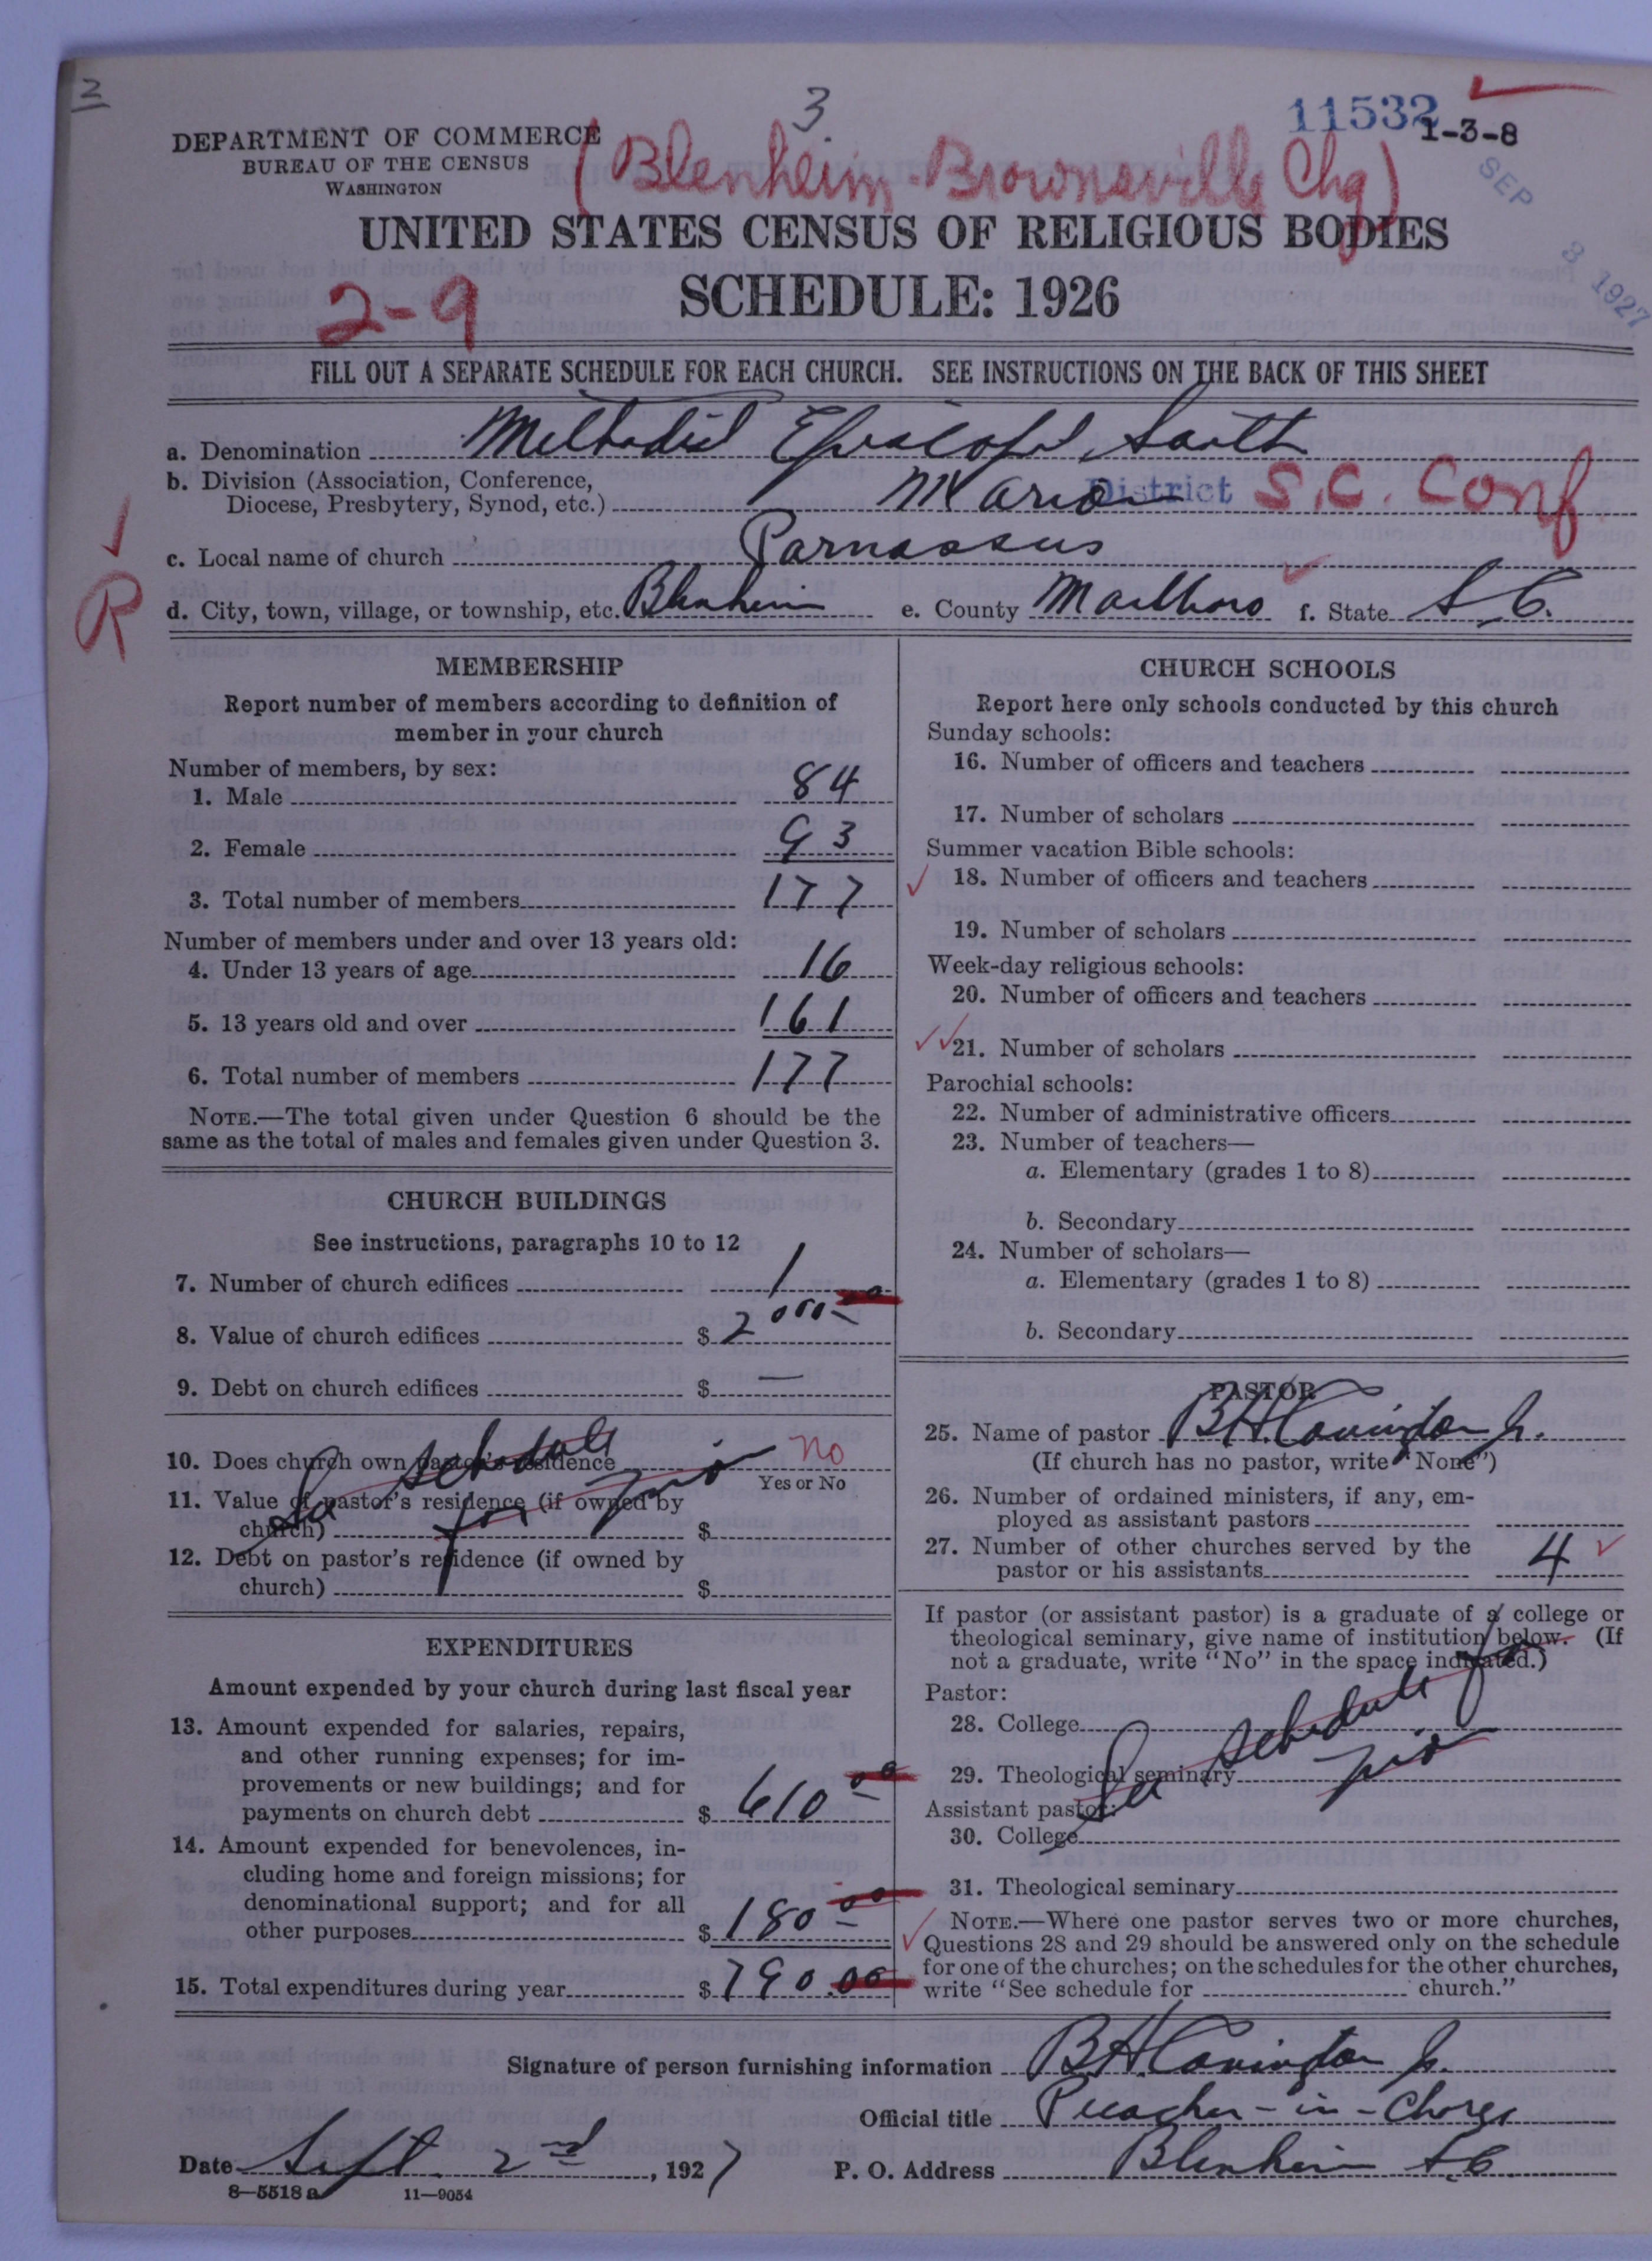 2
3.
11532
1-3-8
SEP 3 1927
DEPARTMENT OF COMMERCE
BUREAU OF THE CENSUS
WASHINGTON
(Blenheim-Brownsville Chg)
UNITED STATES CENSUS OF RELIGIOUS BODIES
2-9
SCHEDULE: 1926
FILL OUT A SEPARATE SCHEDULE FOR EACH CHURCH. SEE INSTRUCTIONS ON THE BACK OF THIS SHEET
a. Denomination Methodist Episcopal South
b. Division (Association, Conference,
Diocese, Presbytery, Synod, etc.) Marion District S.C. Conf.
c. Local name of church Parnassus
R
d. City, town, village, or township, etc. Blenheim e. County Marlboro f. State S.C.
MEMBERSHIP
Report number of members according to definition of
member in your church
Number of members, by sex:
1. Male 84
2. Female 93
3. Total number of members 177
Number of members under and over 13 years old:
4. Under 13 years of age 16
5. 13 years old and over 161
6. Total number of members 177
NOTE.—The total given under Question 6 should be the
same as the total of males and females given under Question 3.
CHURCH BUILDINGS
See instructions, paragraphs 10 to 12
7. Number of church edifices 1
8. Value of church edifices $ 2000 00
9. Debt on church edifices $ —
10. Does church own pastor's residence no
Yes or No
11. Value of pastor's residence (if owned by
church) $
12. Debt on pastor's residence (if owned by
church) $
See schedule
for
EXPENDITURES
Amount expended by your church during last fiscal year
13. Amount expended for salaries, repairs,
and other running expenses; for im-
provements or new buildings; and for
payments on church debt $ 610 00
14. Amount expended for benevolences, in-
cluding home and foreign missions; for
denominational support; and for all
other purposes $ 180 00
15. Total expenditures during year $ 790.00
CHURCH SCHOOLS
Report here only schools conducted by this church
Sunday schools:
16. Number of officers and teachers
17. Number of scholars
Summer vacation Bible schools:
18. Number of officers and teachers
19. Number of scholars
Week-day religious schools:
20. Number of officers and teachers
21. Number of scholars
Parochial schools:
22. Number of administrative officers
23. Number of teachers—
a. Elementary (grades 1 to 8)
b. Secondary
24. Number of scholars—
a. Elementary (grades 1 to 8)
b. Secondary
PASTOR
25. Name of pastor B H Covington Jr.
(If church has no pastor, write "None")
26. Number of ordained ministers, if any, em-
ployed as assistant pastors
27. Number of other churches served by the
pastor or his assistants 4
If pastor (or assistant pastor) is a graduate of a college or
theological seminary, give name of institution below. (If
not a graduate, write "No" in the space indicated.)
Pastor:
28. College
29. Theological seminary
See schedule for
Assistant pastor:
30. College
31. Theological seminary
NOTE.—Where one pastor serves two or more churches,
Questions 28 and 29 should be answered only on the schedule
for one of the churches; on the schedules for the other churches,
write "See schedule for church."
Signature of person furnishing information B H Covington Jr.
Official title Preacher-in-Charge
Date Sept. 2nd, 1927 P. O. Address Blenheim S.C.
8—5518 a 11—9054